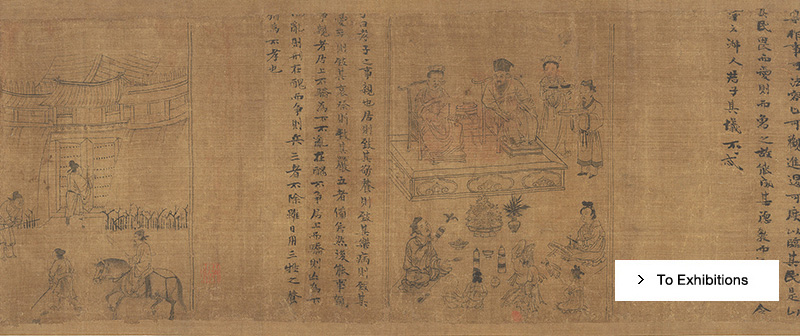 事可法容止可觀進退可度以臨其民是以
其民畏而愛則而象之故能成其德教而令
云淑人君子其儀不忒
子曰孝子之事親也居則致其敬養則致其樂病則致其
憂喪則致其哀祭則致其嚴五者備矣然後能事親
事親者居上不驕為下不亂在醜不爭居上而驕則亡為下
而亂則刑在醜而爭則兵三者不除雖日用三牲之養
猶為不孝也
To Exhibitions